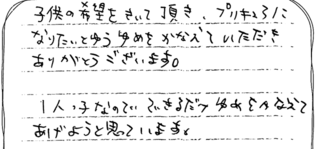 子供の希望をきいて頂き、プリキュアに
なりたいとゆうゆめをかなえていただき
ありがとうございます。
1人っ子なのでできるだけゆめをかなえて
あげようと思っています。